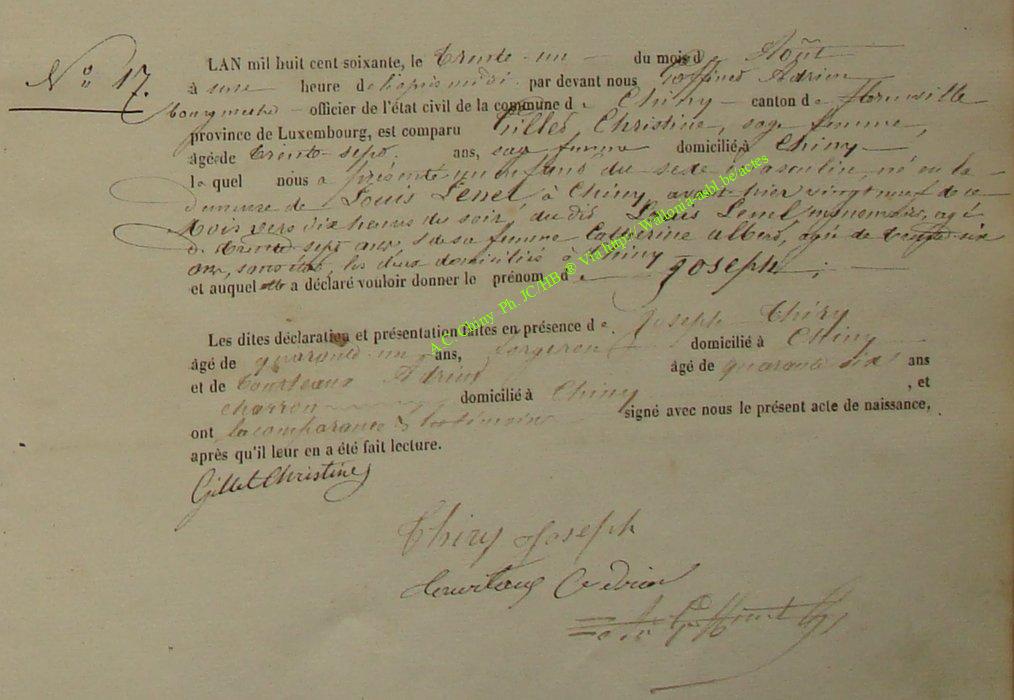 N° 17.
LAN mil huit cent soixante, le trente un du mois d Août
à une heure de l'après midi par devant nous Goffinet Adrien
bourgmestre officier de l'état civil de la commune de Chiny canton de Florenville
province de Luxembourg, est comparu Gillet Christine, sage femme,
âgé de trente sept ans, sage femme domicilié à Chiny
laquel nous a présenté un enfant du sexe masculin, né en la
demeure de Louis Lenel, à Chiny, avant hier vingt neuf de ce
mois vers dix heures du soir, du dit Louis Lenel, agé
de trente sept ans, & de sa femme Catherine Albert, agée de trente six
ans, sans état, les deux domiciliés à Chiny
et auquel elle a déclaré vouloir donner le prénom de Joseph
Les dites déclaration et présentation faites en présence de Joseph Thiry
âgé de quarante un ans, forgeron domicilié à Chiny
et de Adrien âgé de quarante six ans
charron domicilié à Chiny , et
ont la comparante & les témoins signé avec nous le présent acte de naissance,
après qu'il leur en a été fait lecture.
Gillet Christine
Thiry Joseph
Adrien
A Goffinet
A C Chiny Ph. JC/HB ® Via http://Wallonia-asbl.be/actes